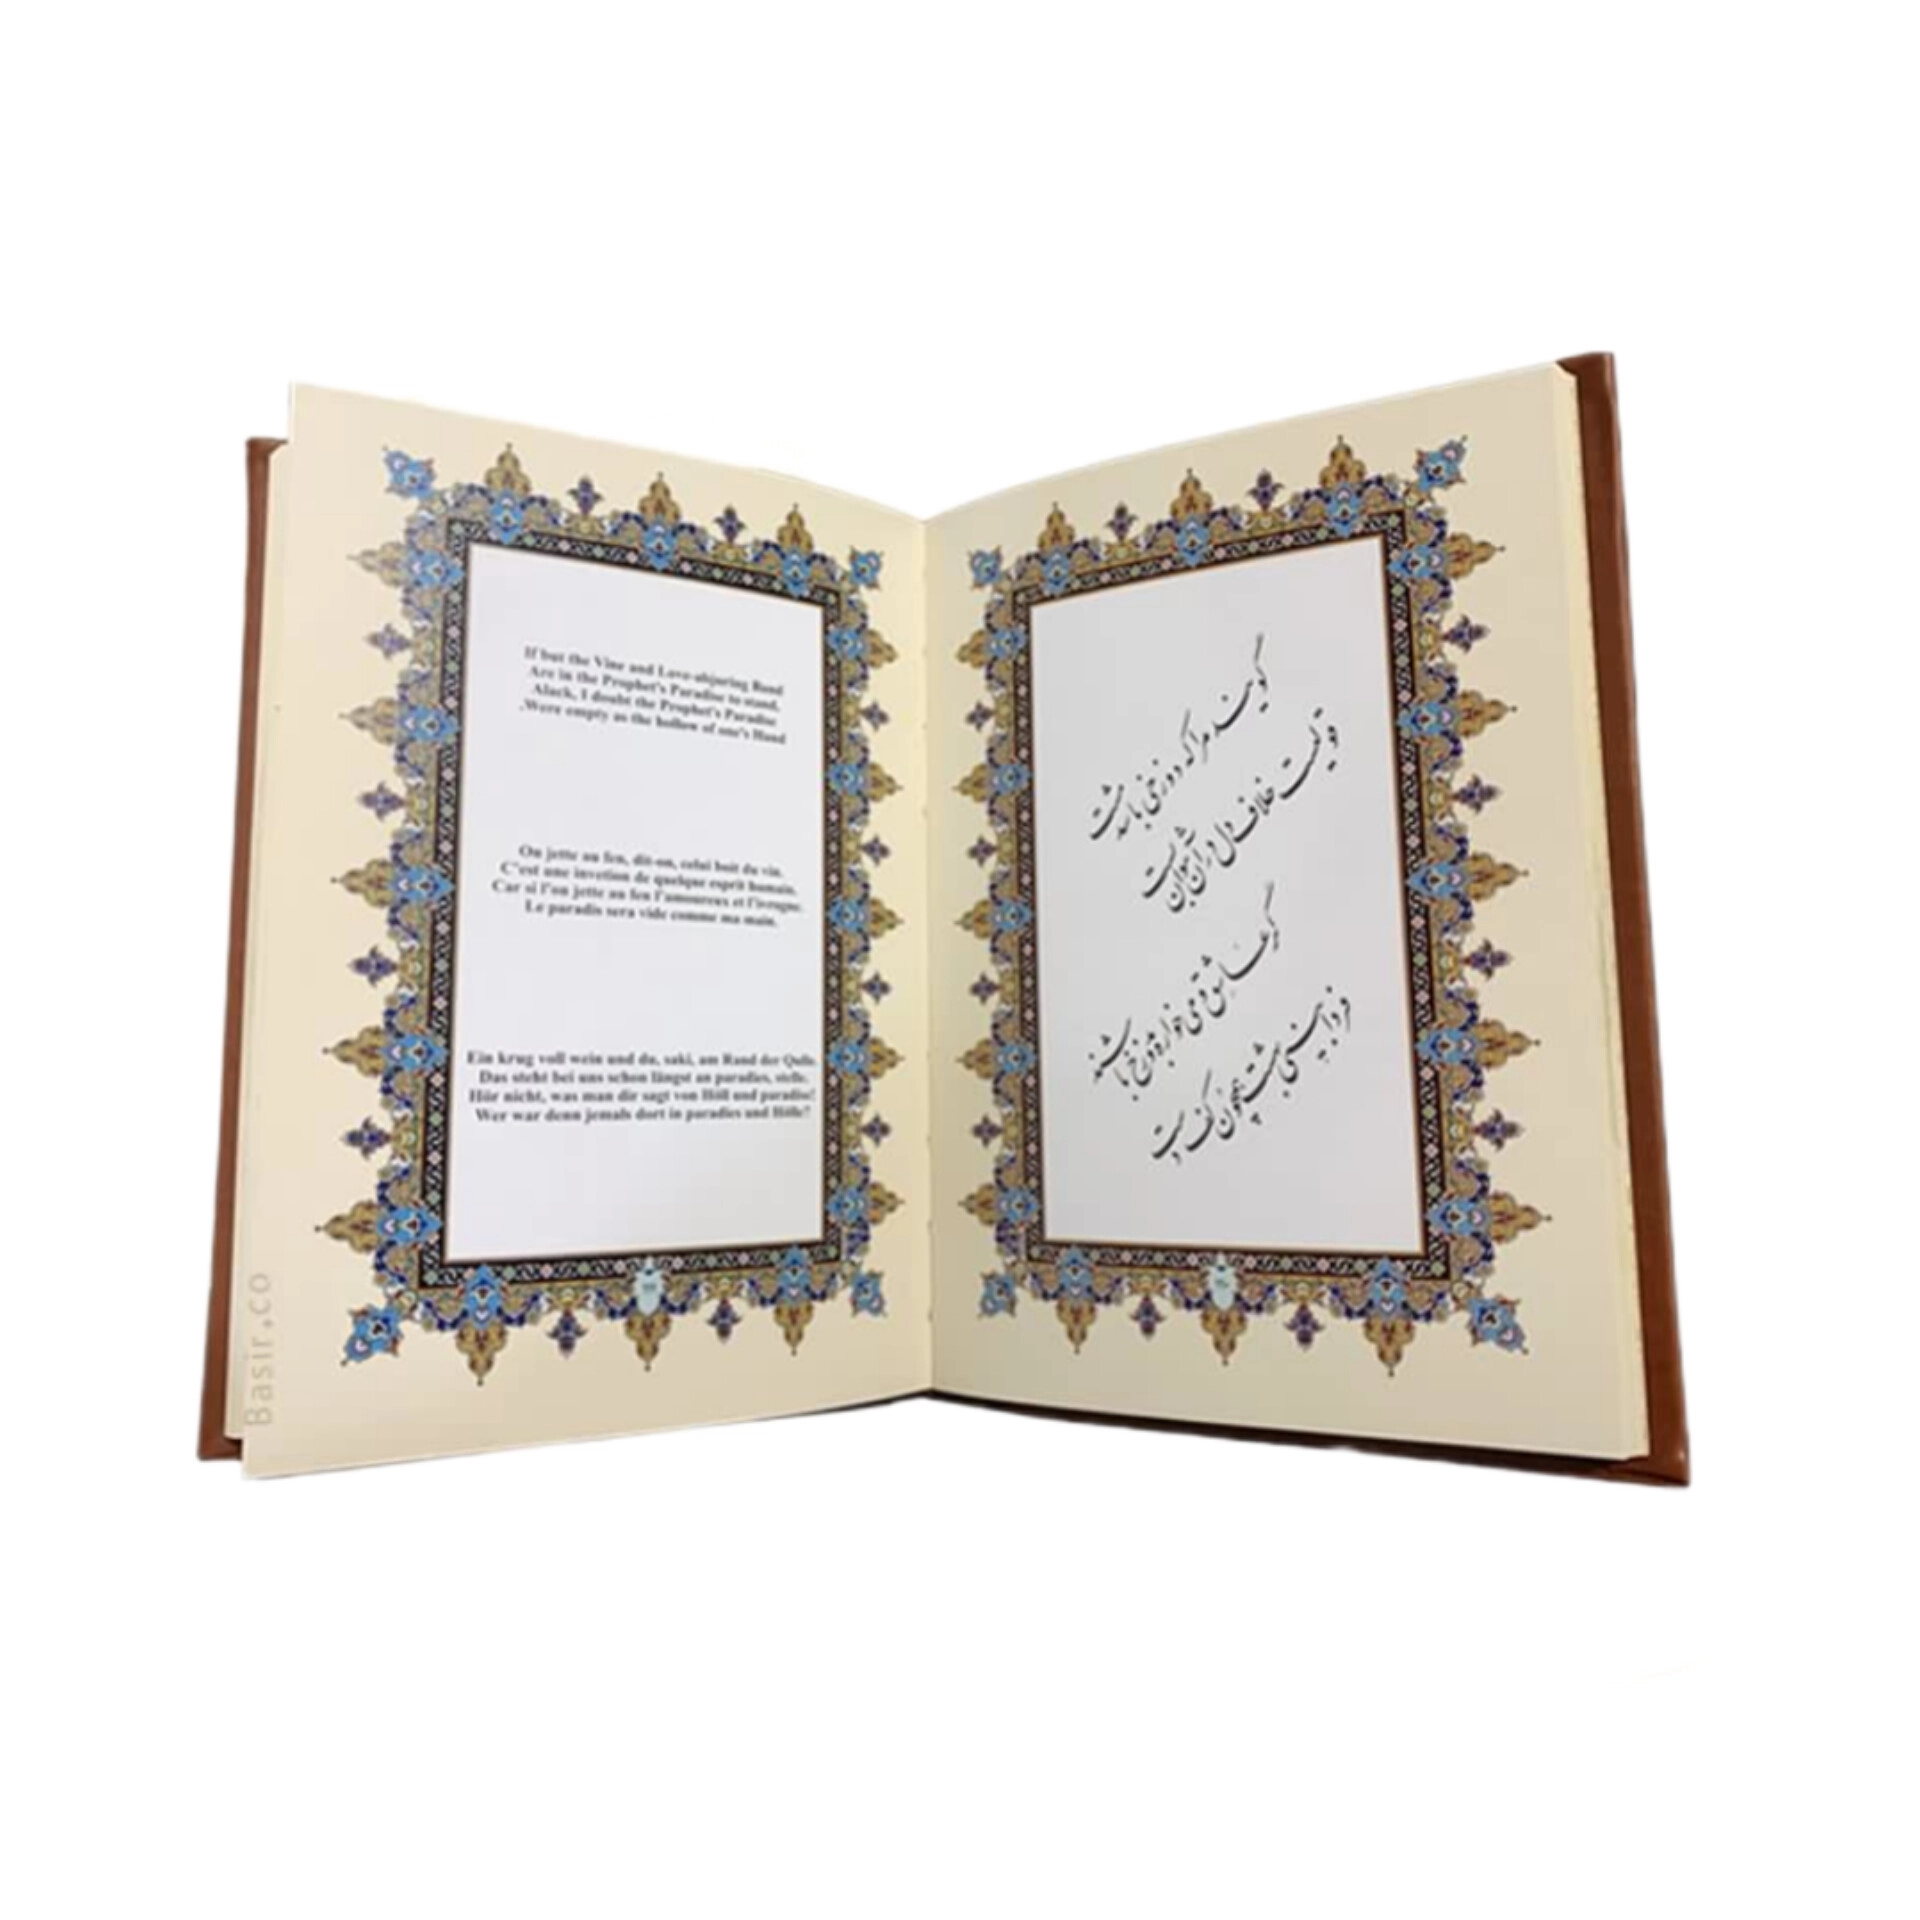 If but the Vine and Love-abjuring Band
Are in the Prophet's Paradise to stand,
Alack, I doubt the Prophet's Paradise
.Were empty as the hollow of one's Hand
On jette au feu, dit-on, celui boit du vin.
C'est une invetion de quelque esprit humain.
Car si l'on jette au feu l'amoureux et l'ivrogne.
Le paradis sera vide comme ma main.
Ein krug voll wein und du, saki, am Rand der Qulle.
Das steht bei uns schon längst an paradies, stelle.
Hör nicht, was man dir sagt von Höll und paradise!
Wer war denn jemals dort in paradies und Hölle?
گویند مرا که دوزخی باشد مست
قولیست خلاف دل در آن نتوان بست
گر عاشق و می خواره بدوزخ باشند
فردا بینی بهشت همچون کف دست
Basir.co